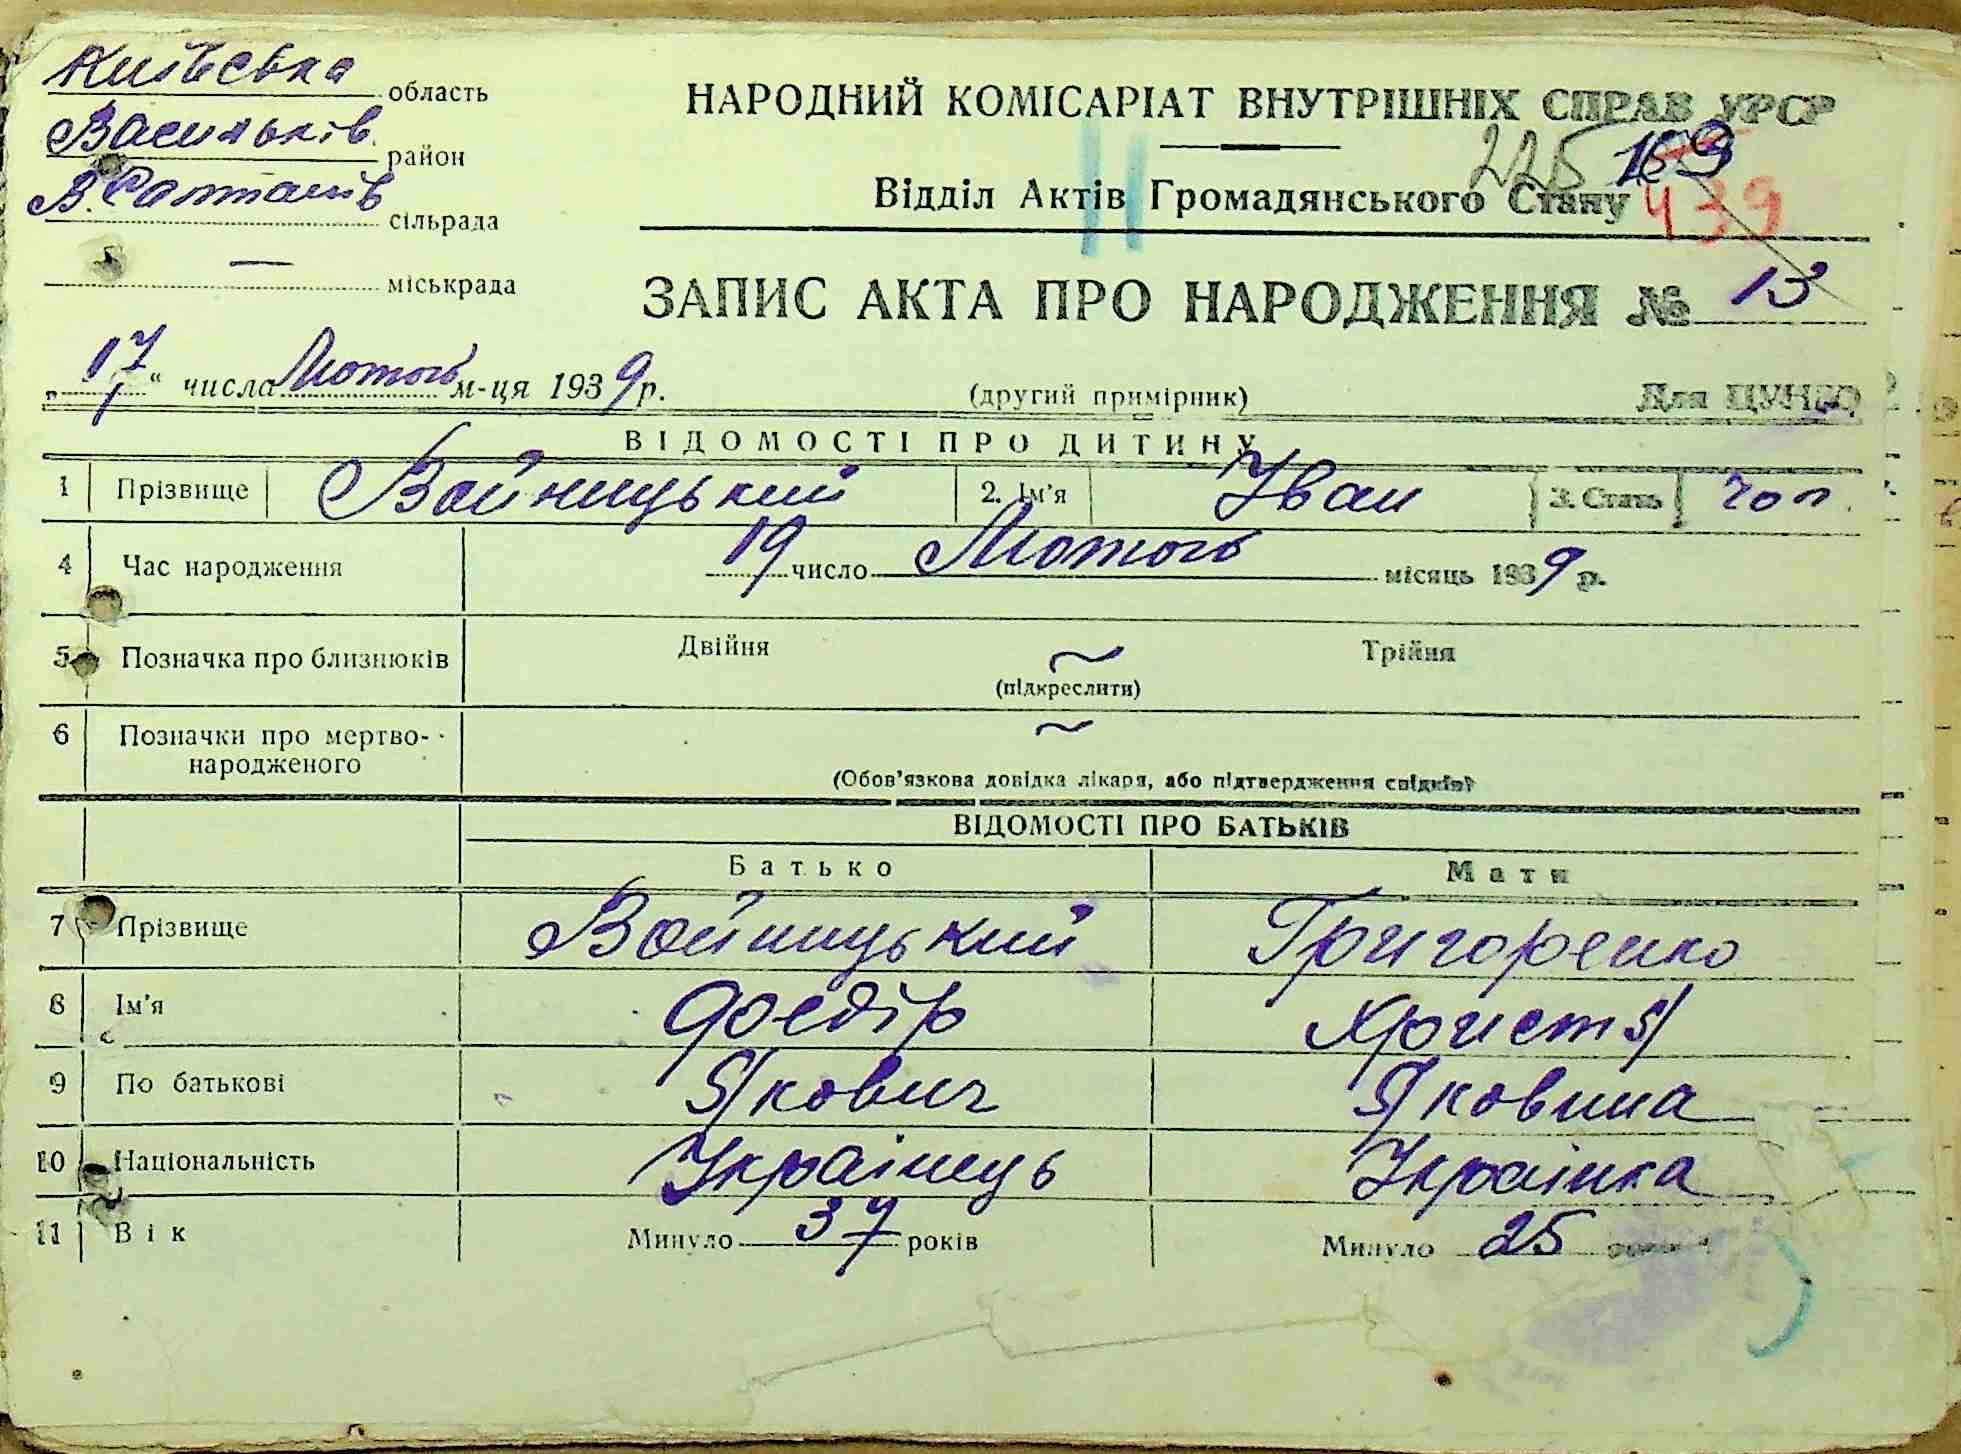 Київська область
Васильків. район
В. Солтанів сільрада
— міськрада
НАРОДНИЙ КОМІСАРІАТ ВНУТРІШНІХ СПРАВ УРСР
225 169
Відділ Актів Громадянського Стану 439
ЗАПИС АКТА ПРО НАРОДЖЕННЯ № 13
„17“ числа Лютого м-ця 1939 р. (другий примірник) Для ЦУНГО
ВІДОМОСТІ ПРО ДИТИНУ
1 Прізвище Войницький 2. Ім’я Іван 3. Стать чол.
4 Час народження 19 число Лютого місяць 1939 р.
5 Позначка про близнюків Двійня ~ Трійня
(підкреслити)
6 Позначки про мертво-
народженого ~
(Обов’язкова довідка лікаря, або підтвердження свідків)
ВІДОМОСТІ ПРО БАТЬКІВ
Батько Мати
7 Прізвище Войницький Григоренко
8 Ім’я Федір Христя
9 По батькові Якович Яковина
10 Національність Українець Українка
11 Вік Минуло 37 років Минуло 25 років